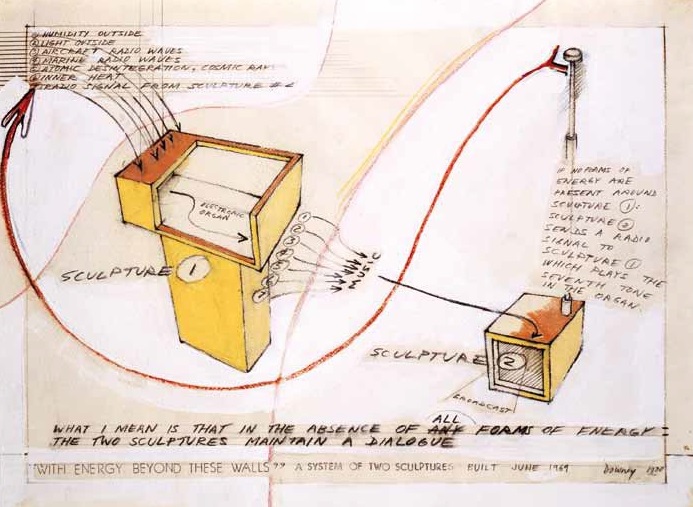 ① HUMIDITY OUTSIDE
② LIGHT OUTSIDE
③ AIRCRAFT RADIO WAVES
④ MARINE RADIO WAVES
⑤ ATOMIC DESINTEGRATION, COSMIC RAY
⑥ INNER HEAT
⑦ RADIO SIGNAL FROM SCULPTURE # 2
ELECTRONIC
ORGAN
SCULPTURE 1
1
2
3
4
5
6
7
MUSIC
IF NO FORMS OF
ENERGY ARE
PRESENT AROUND
SCULPTURE ①:
SCULPTURE ②
SENDS A RADIO
SIGNAL TO
SCULPTURE ①
WHICH PLAYS THE
SEVENTH TONE
IN THE ORGAN.
SCULPTURE 2
BROADCAST
ALL
WHAT I MEAN IS THAT IN THE ABSENCE OF ANY FORMS OF ENERGY =
THE TWO SCULPTURES MAINTAIN A DIALOGUE
"WITH ENERGY BEYOND THESE WALLS" A SYSTEM OF TWO SCULPTURES BUILT JUNE 1969 Downey